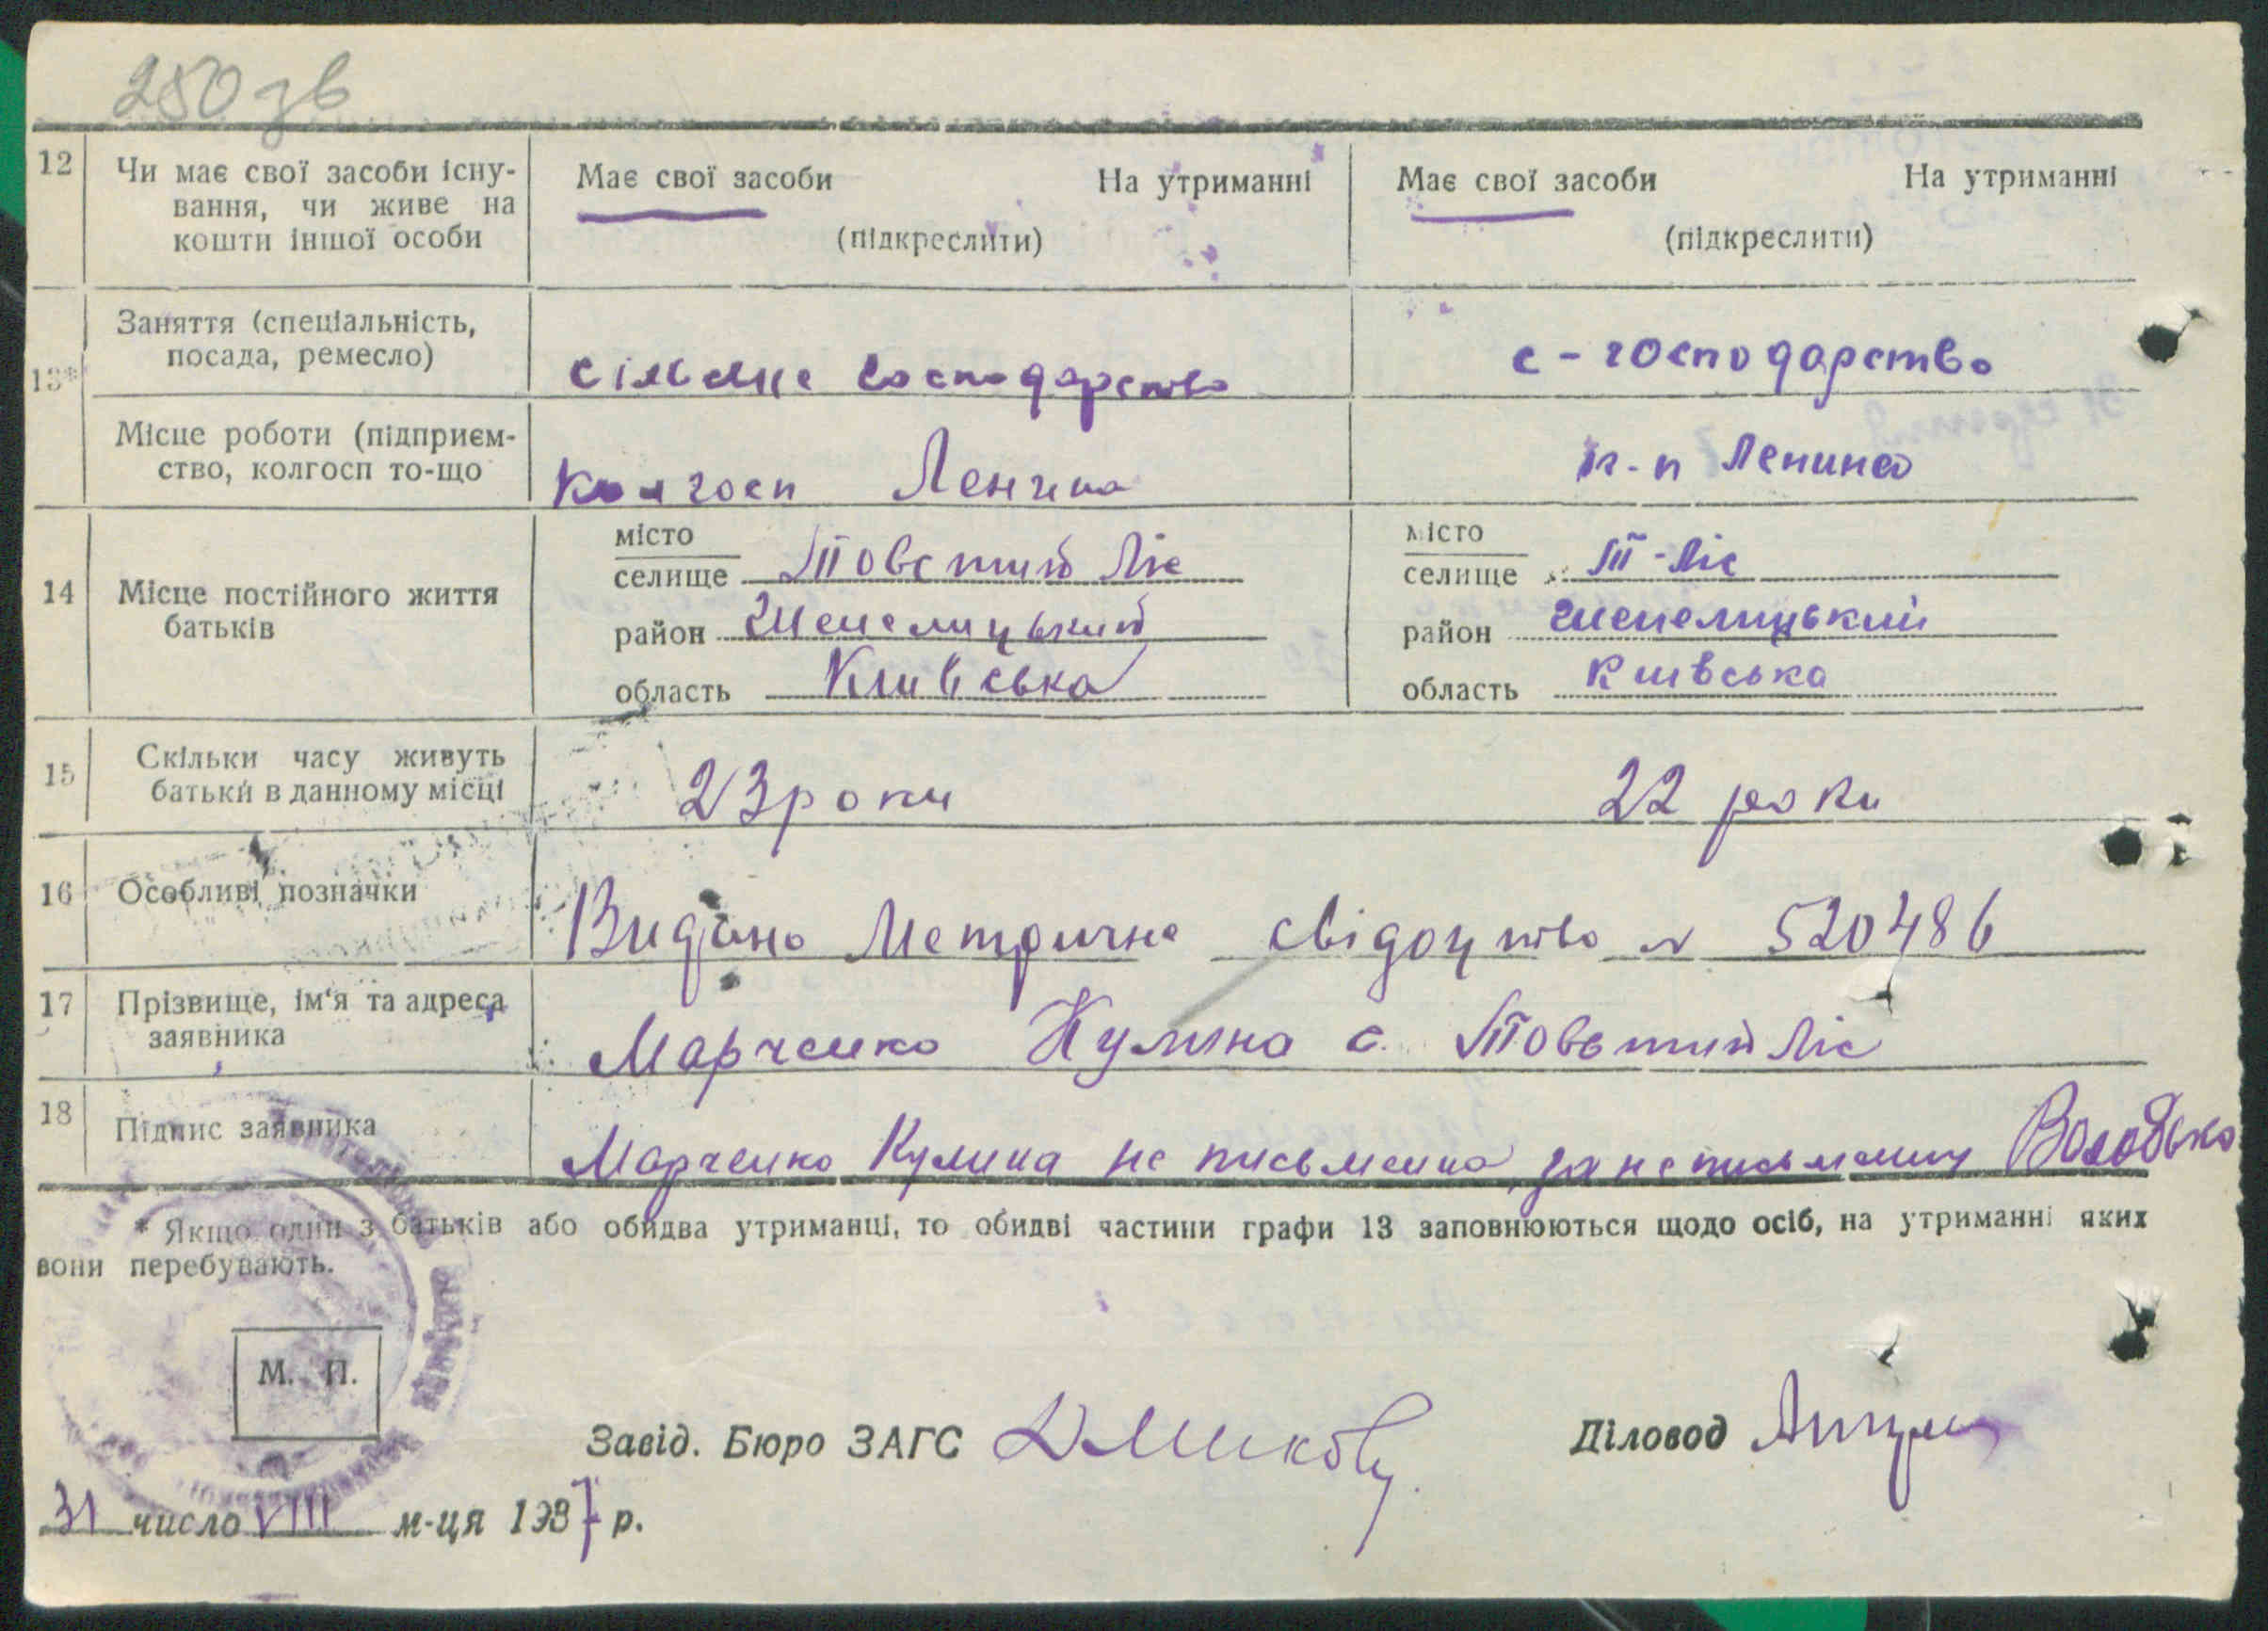 280 зв
12 Чи має свої засоби існу- Має свої засоби На утриманні Має свої засоби На утриманні
вання, чи живе на
кошти іншої особи (підкреслити) (підкреслити)
Заняття (спеціальність,
посада, ремесло) сільське господарство с-господарство
13*
Місце роботи (підприєм-
ство, колгосп то-що колгосп Леніна к-п Ленина
місто місто
селище Товстий Ліс селище Т-Ліс
14 Місце постійного життя
батьків район Шепелицький район Шепелицький
область Київська область Київська
15 Скільки часу живуть
батьки в данному місці 23 роки 22 роки
16 Особливі позначки Видано Метричне свідоцтво № 520486
17 Прізвище, ім'я та адреса
заявника Марченко Кулина с. Товстий Ліс
18 Підпис заявника Марченко Кулина не письменна, за неписьменну
* Якщо один з батьків або обидва утриманці, то обидві частини графи 13 заповнюються щодо осіб, на утриманні яких
вони перебувають.
М. П.
Завід. Бюро ЗАГС Діловод
31 число VIII м-ця 1937 р.